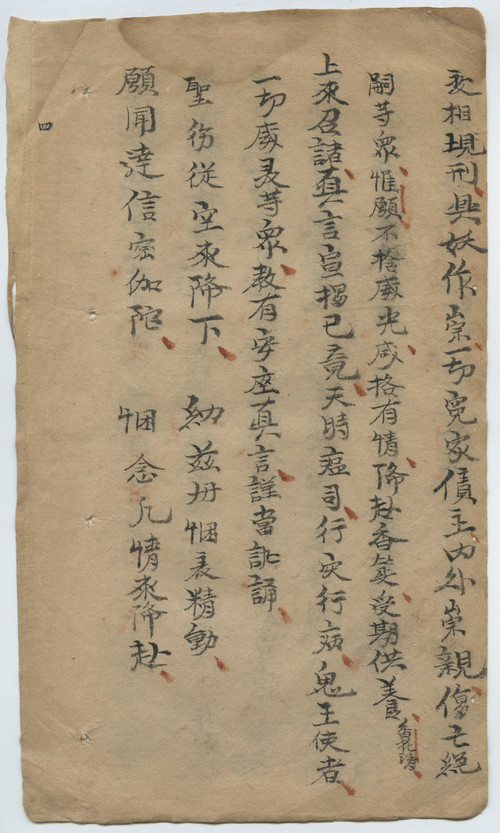 変相現刑興妖作祟一切冤家債主內外祟親傷亡絕
嗣等眾惟願不捨威光咸格有情降赴香筵受期供養香花請
上來召請真言宣揚已竟天時瘟司行灾行病鬼王使者
一切威灵等眾教有安座真言謹當訨誦
聖衆從空來降下 納兹丹悃表精勤
願聞達信密伽陀 悃念凡情來降赴
四